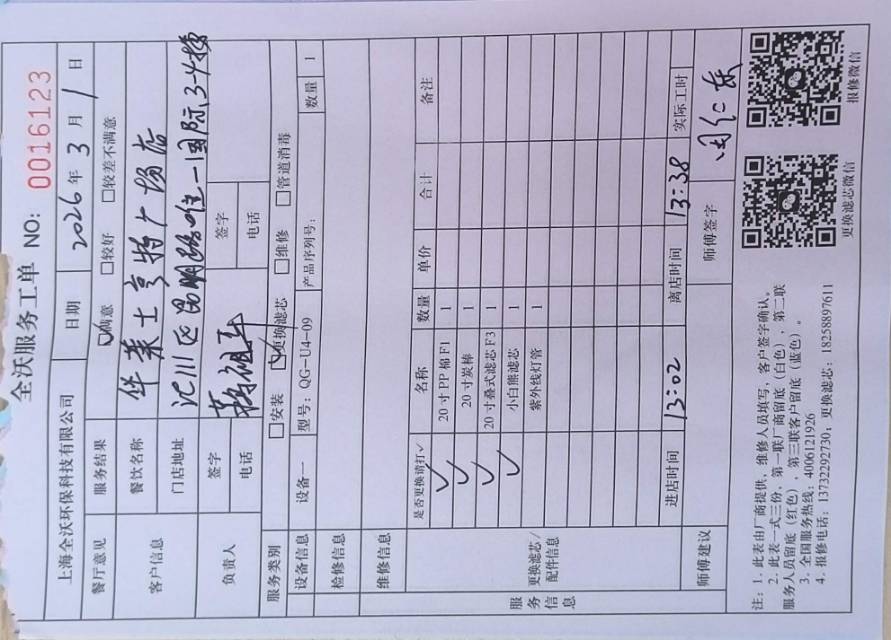 全沃服务工单 NO: 0016123
上海全沃环保科技有限公司 日期 2026年3月1日
餐厅意见 服务结果 ☑满意 □较好 □较差不满意
客户信息 餐饮名称 华莱士亨特广场店
门店地址 汇川区昆明路唯一国际3-4楼
负责人 签字 签字
电话 电话
服务类别 □安装 ☑更换滤芯 □维修 □管道消毒
设备信息 设备一 型号: QG-U4-09 产品序列号: 数量 1
检修信息
维修信息
服务信息 更换滤芯/配件信息 是否更换请打✓ 名称 数量 单价 合计 备注
✓ 20寸PP棉F1 1
✓ 20寸炭棒 1
✓ 20寸叠式滤芯F3 1
✓ 小白熊滤芯 1
紫外线灯管 1
进店时间 13:02 离店时间 13:38 实际工时
师傅建议 师傅签字 周仁东
注: 1. 此表由厂商提供, 维修人员填写, 客户签字确认。
2. 此表一式三份, 第一联厂商留底(白色), 第二联
服务人员留底(红色), 第三联客户留底(蓝色)。
3. 全国服务热线: 4006121926
4. 报修电话: 13732292730; 更换滤芯: 18258897611
更换滤芯微信 报修微信